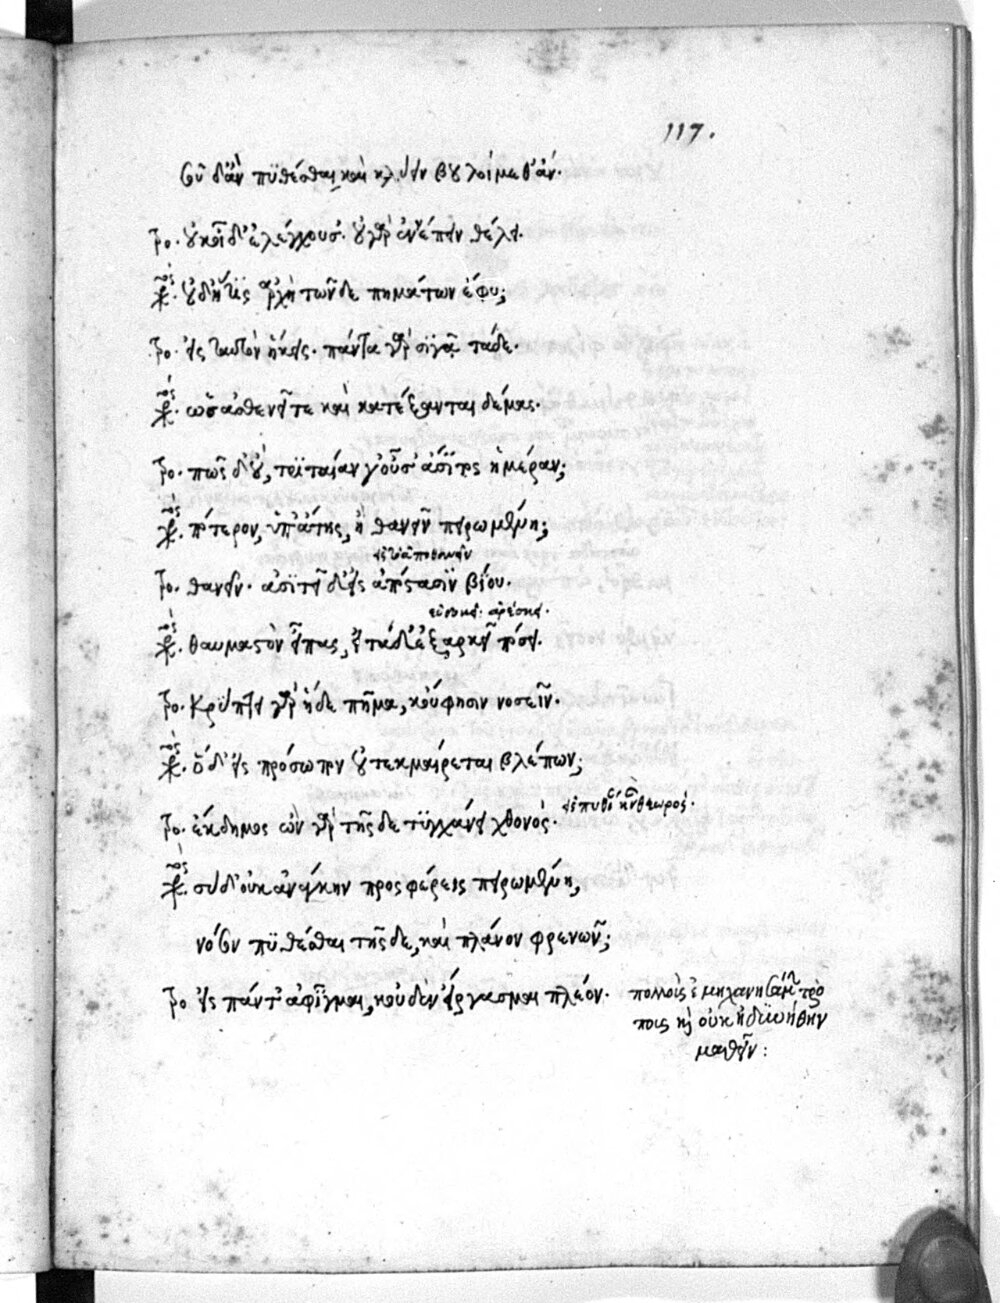 117.
σοῦ δ' ἂν πυθέσθαι καὶ κλύειν βουλοίμεθ' ἄν.
Τρο. οὐκ οἶδ' ἐλέγχουσ'. οὐ γὰρ ἐννέπειν θέλει.
Χορ. οὐδ' ἥτις ἀρχὴ τῶνδε πημάτων ἔφυ;
Τρο. εἰς ταυτὸν ἥκεις. πάντα γὰρ σιγᾷ τάδε.
Χορ. ὡς ἀσθενεῖ τε καὶ κατέξανται δέμας.
Τρο. πῶς δ' οὔ, τριταίαν γ' οὖσ' ἄσιτος ἡμέραν;
Χορ. πότερον ὑπ' ἄτης, ἢ θανεῖν πειρωμένη;
εἰς τὸ ἀποθανεῖν
Τρο. θανεῖν. ἀσιτεῖ δ' εἰς ἀπόστασιν βίου.
ἀρέσκει.
Χορ. θαυμαστὸν εἶπας, εἰ τάδ' ἐξαρκεῖ πόσει.
Τρο. Κρύπτει γὰρ ἥδε πῆμα, κοὔφησιν νοσεῖν.
Χορ. ὁ δ' εἰς πρόσωπον οὐ τεκμαίρεται βλέπων;
Τρο. ἔκδημος ὢν γὰρ τῆσδε τυγχάνει χθονός.
Χορ. σὺ δ' οὐκ ἀνάγκην προσφέρεις πειρωμένη,
νόσον πυθέσθαι τῆσδε, καὶ πλάνον φρενῶν;
Τρο. εἰς πάντ' ἀφῖγμαι, κοὐδὲν εἴργασμαι πλέον.
πολλοῖς ἐμηχανησάμην τρό
ποις καὶ οὐκ ἠδυνήθην
μαθεῖν: